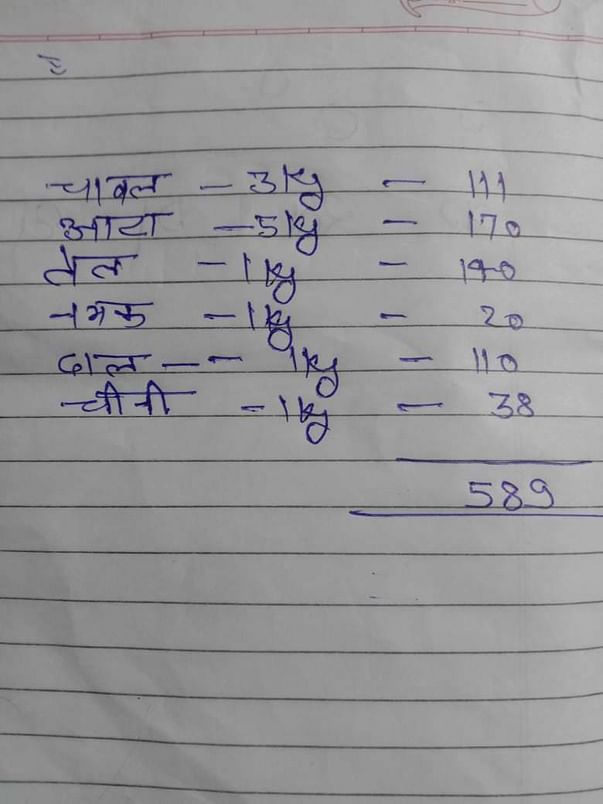 चावल - 3 Kg - 111
आटा - 5 Kg - 170
तेल - 1 Kg - 140
नमक - 1 Kg - 20
दाल - - 1 Kg - 110
चीनी - 1 Kg - 38
589